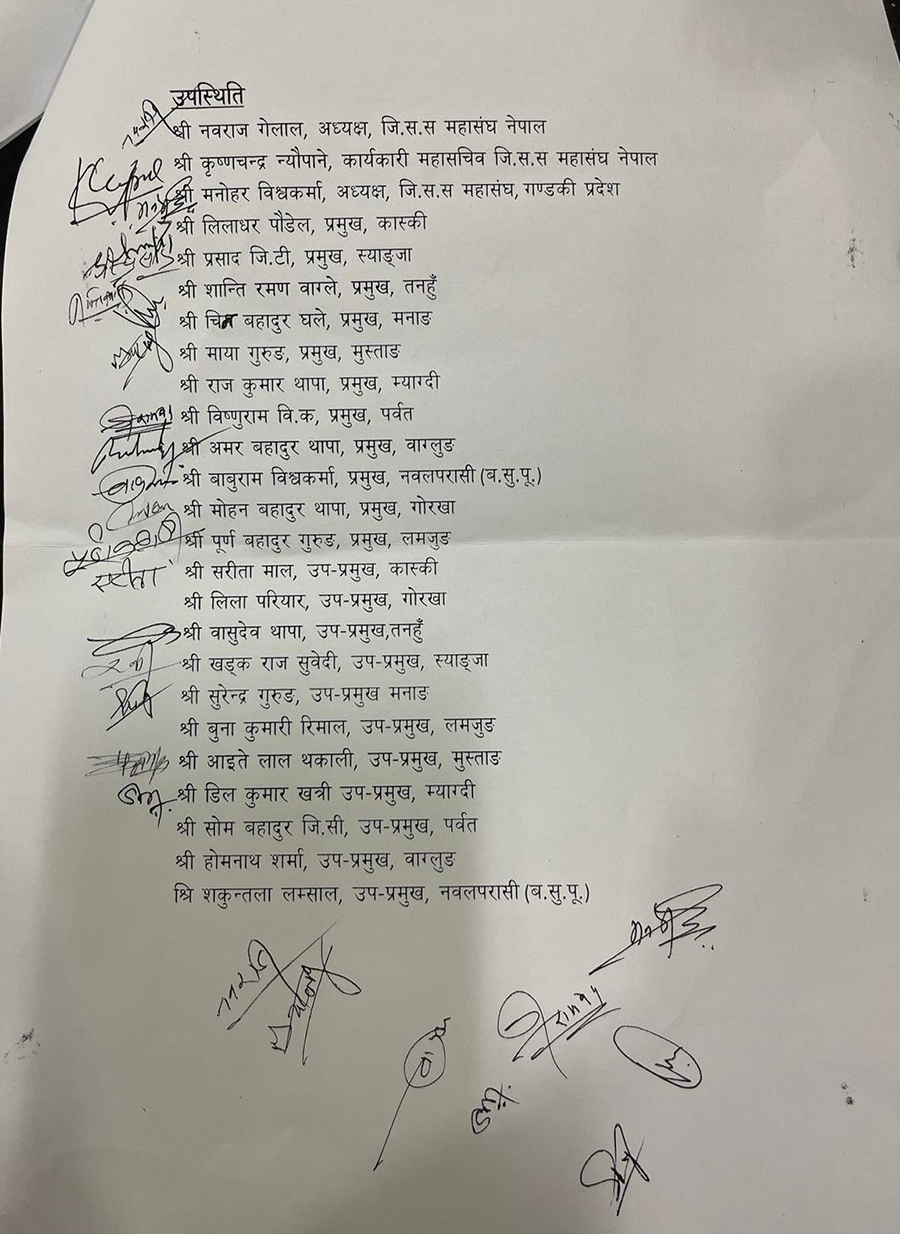 उपस्थिति
श्री नवराज गेलाल, अध्यक्ष, जि.स.स महासंघ नेपाल
श्री कृष्णचन्द्र न्यौपाने, कार्यकारी महासचिव जि.स.स महासंघ नेपाल
श्री मनोहर विश्वकर्मा, अध्यक्ष, जि.स.स महासंघ, गण्डकी प्रदेश
श्री लिलाधर पौडेल, प्रमुख, कास्की
श्री प्रसाद जि.टी, प्रमुख, स्याङ्जा
श्री शान्ति रमण वाग्ले, प्रमुख, तनहुँ
श्री बहादुर घले, प्रमुख, मनाङ
श्री माया गुरुङ, प्रमुख, मुस्ताङ
श्री राज कुमार थापा, प्रमुख, म्याग्दी
श्री विष्णुराम वि.क, प्रमुख, पर्वत
श्री अमर बहादुर थापा, प्रमुख, वाग्लुङ
श्री बाबुराम विश्वकर्मा, प्रमुख, नवलपरासी (ब.सु.पू.)
श्री मोहन बहादुर थापा, प्रमुख, गोरखा
श्री पूर्ण बहादुर गुरुङ, प्रमुख, लमजुङ
सरीता
श्री सरीता माल, उप-प्रमुख, कास्की
श्री लिला परियार, उप-प्रमुख, गोरखा
श्री वासुदेव थापा, उप-प्रमुख,तनहुँ
श्री खड्क राज सुवेदी, उप-प्रमुख, स्याङ्जा
श्री सुरेन्द्र गुरुङ, उप-प्रमुख मनाङ
श्री बुना कुमारी रिमाल, उप-प्रमुख, लमजुङ
श्री आइते लाल थकाली, उप-प्रमुख, मुस्ताङ
श्री डिल कुमार खत्री उप-प्रमुख, म्याग्दी
श्री सोम बहादुर जि.सी, उप-प्रमुख, पर्वत
श्री होमनाथ शर्मा, उप-प्रमुख, वाग्लुङ
श्रि शकुन्तला लम्साल, उप-प्रमुख, नवलपरासी (ब.सु.पू.)